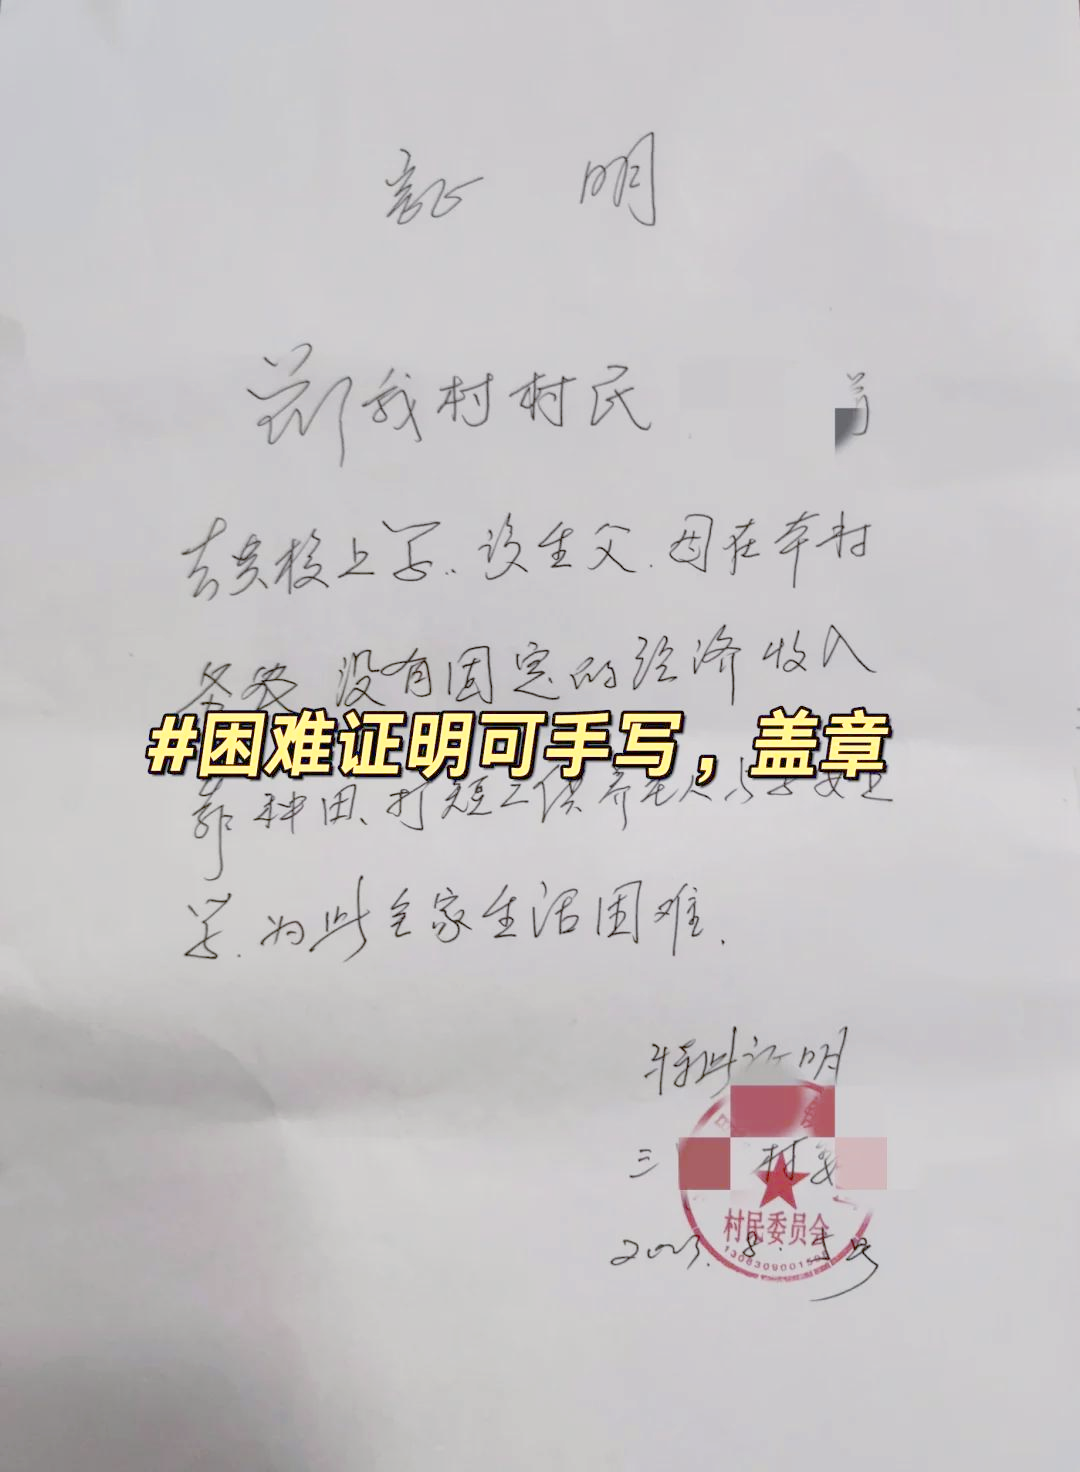 证 明
我村村民
去贵校上学.该生父.因在本村
务农,没有固定的经济收入
#困难证明可手写，盖章
靠种田、打短工供养老人与子女上
学.为此全家生活困难.
特此证明
三 村委
村民委员会
2023.8.